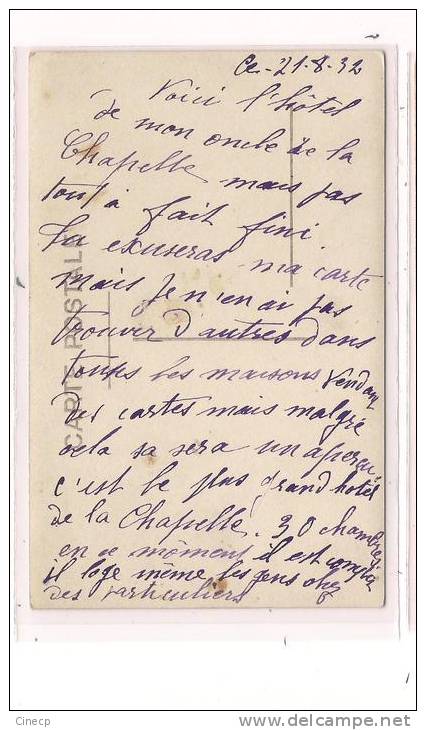 Ce - 21-8-32
Voici l'hôtel
de mon oncle de la
Chapelle mais pas
tout à fait fini
tu exuseras ma carte
mais je n'en ai pas
trouver d'autres dans
toutes les maisons vendant
des cartes mais malgré
cela sa sera un aperçu
c'est le plus grand hotel
de la Chapelle. 30 chambres
en ce moment il est complet
il loge même les gens chez
des particuliers
CARTE POSTALE
Cinecp